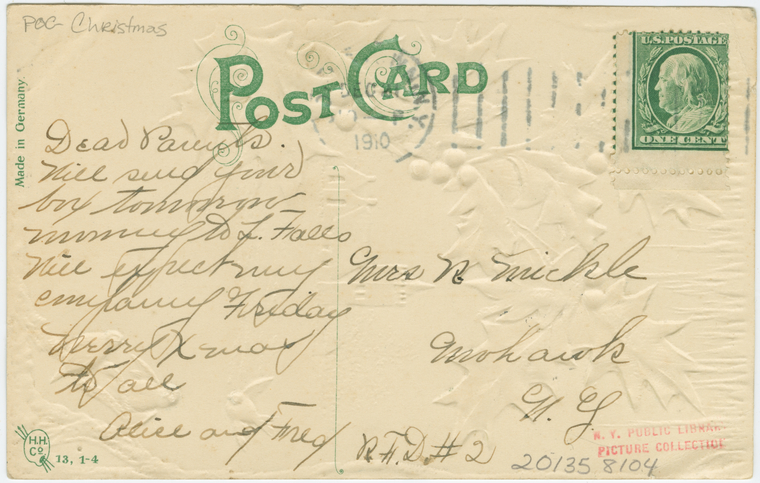 POC- Christmas
POST CARD
U.S. POSTAGE
ONE CENT
DEC
N.Y.
1910
Made in Germany
Dear Parents.
Will send your
box tomorrow
morning to L. Falls
Will expect my
company Friday
Merry Xmas
to all
Alice and Fred
Mrs N Mickle
Mohawk
N. Y.
R.F.D #2
H.H.
Co.
13, 1-4
N. Y. PUBLIC LIBRARY
PICTURE COLLECTION
20135 8104